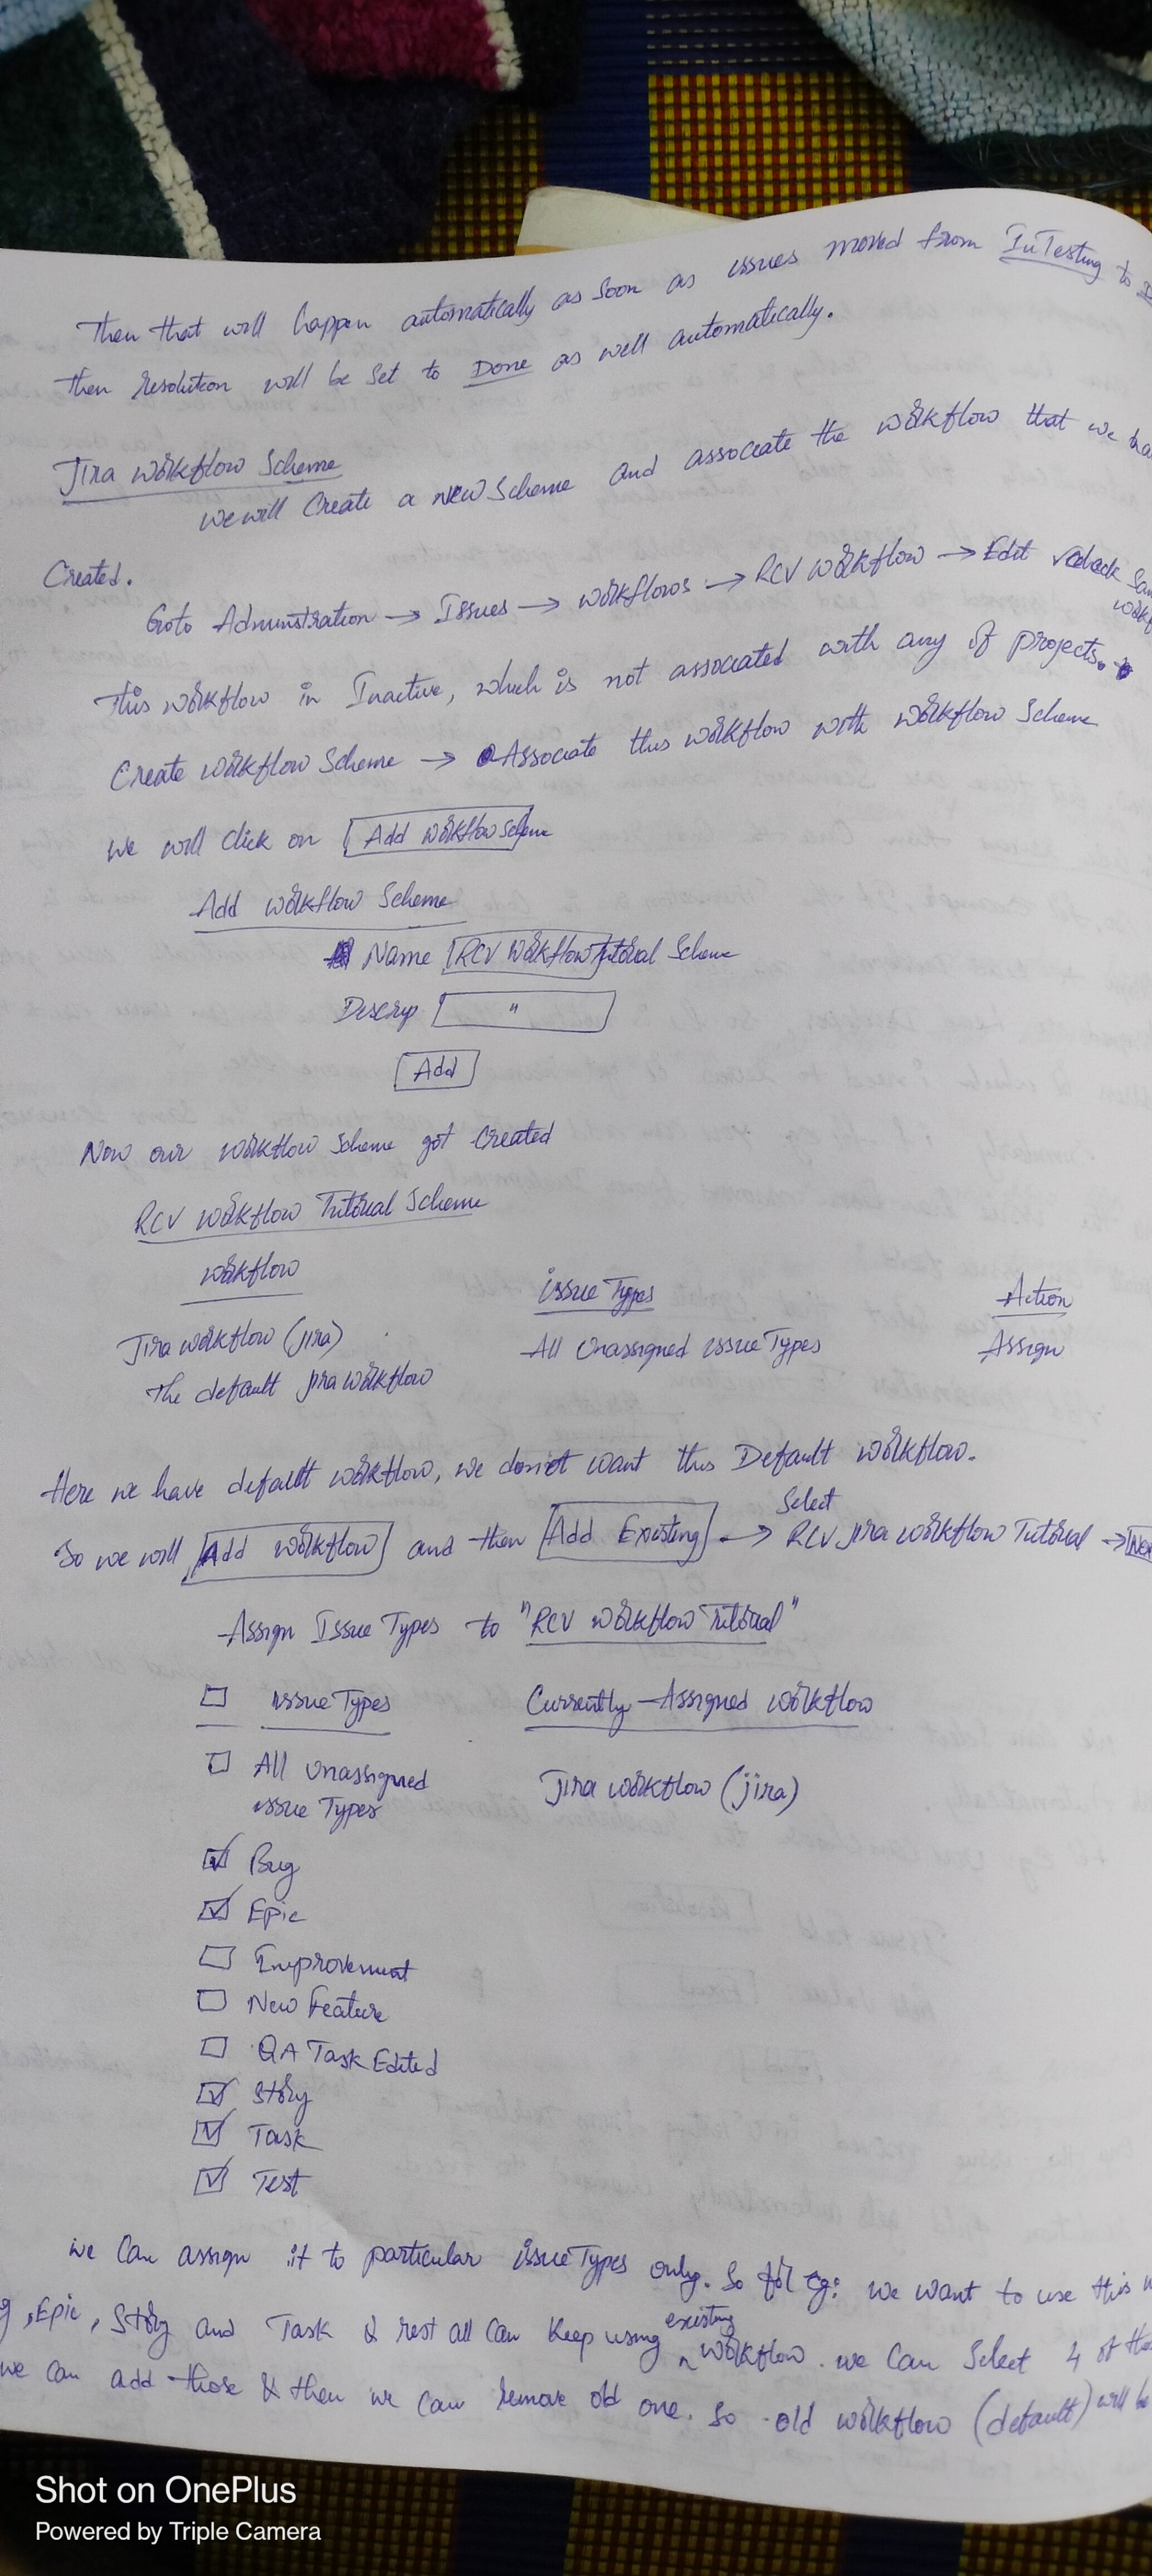 Then that will happen automatically as soon as issues moved from InTesting to
Then resolution will be set to Done as well automatically.
Jira workflow Scheme
we will Create a new Scheme and associate the workflow that we
Created.
Goto Adminstration → Issues → workflows → RCV workflow → Edit check
This workflow in Inactive, which is not associated with any of projects.
Create workflow Scheme → Associate this workflow with workflow Scheme
we will click on Add workflow Scheme
Add workflow Scheme
Name RCV Workflow Tutorial Scheme
Descrip "
Add
Now our workflow Scheme got Created
RCV workflow Tutorial Scheme
workflow issue Types Action
Jira workflow (jira) All Unassigned issue Types Assign
The default jira workflow
Here we have default workflow, we donot want this Default workflow.
Select
So we will Add workflow and then Add Existing → RCV jira workflow Tutorial →
Assign Issue Types to "RCV workflow Tutorial"
issue Types Currently Assigned workflow
All Unassigned Jira workflow (jira)
issue Types
Bug
Epic
Improvement
New Feature
QA Task Edited
Story
Task
Test
we Can assign it to particular issue Types only. So for eg: we want to use this
existing
, Epic, Story and Task & rest all Can Keep using workflow. we Can Select 4 of
we can add those & then we can remove old one. So old workflow (default) will be
Shot on OnePlus
Powered by Triple Camera